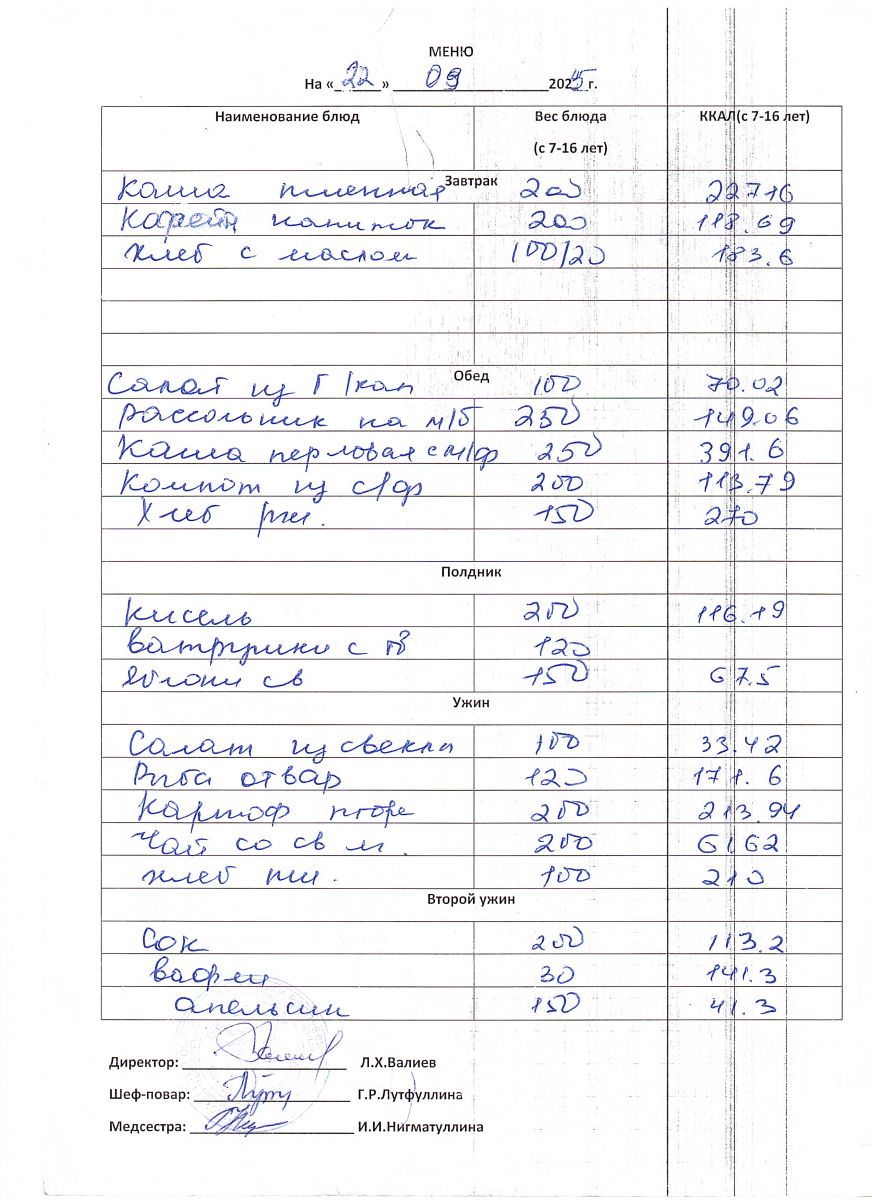 МЕНЮ
На « 22 » 09 2025 г.
Наименование блюд Вес блюда (с 7-16 лет) ККАЛ(с 7-16 лет)
Завтрак
Каша пшенная 200 227.16
Кофейн напиток 200 118.69
Хлеб с маслом 100/20 183.6
Обед
Салат из Г/кап 100 70.02
Рассольник на м/б 250 149.06
Каша перловая с м/ф 250 391.6
Компот из с/ф 200 113.79
Хлеб рж. 150 270
Полдник
Кисель 200 116.19
Ватрушки с тв 120
Яблоки св 150 67.5
Ужин
Салат из свеклы 100 33.42
Рыба отвар 120 171.6
Картоф пюре 200 213.94
Чай со св м. 200 61.62
хлеб пш. 100 210
Второй ужин
Сок 200 113.2
вафли 30 141.3
апельсин 150 41.3
Директор: Л.Х.Валиев
Шеф-повар: Г.Р.Лутфуллина
Медсестра: И.И.Нигматуллина